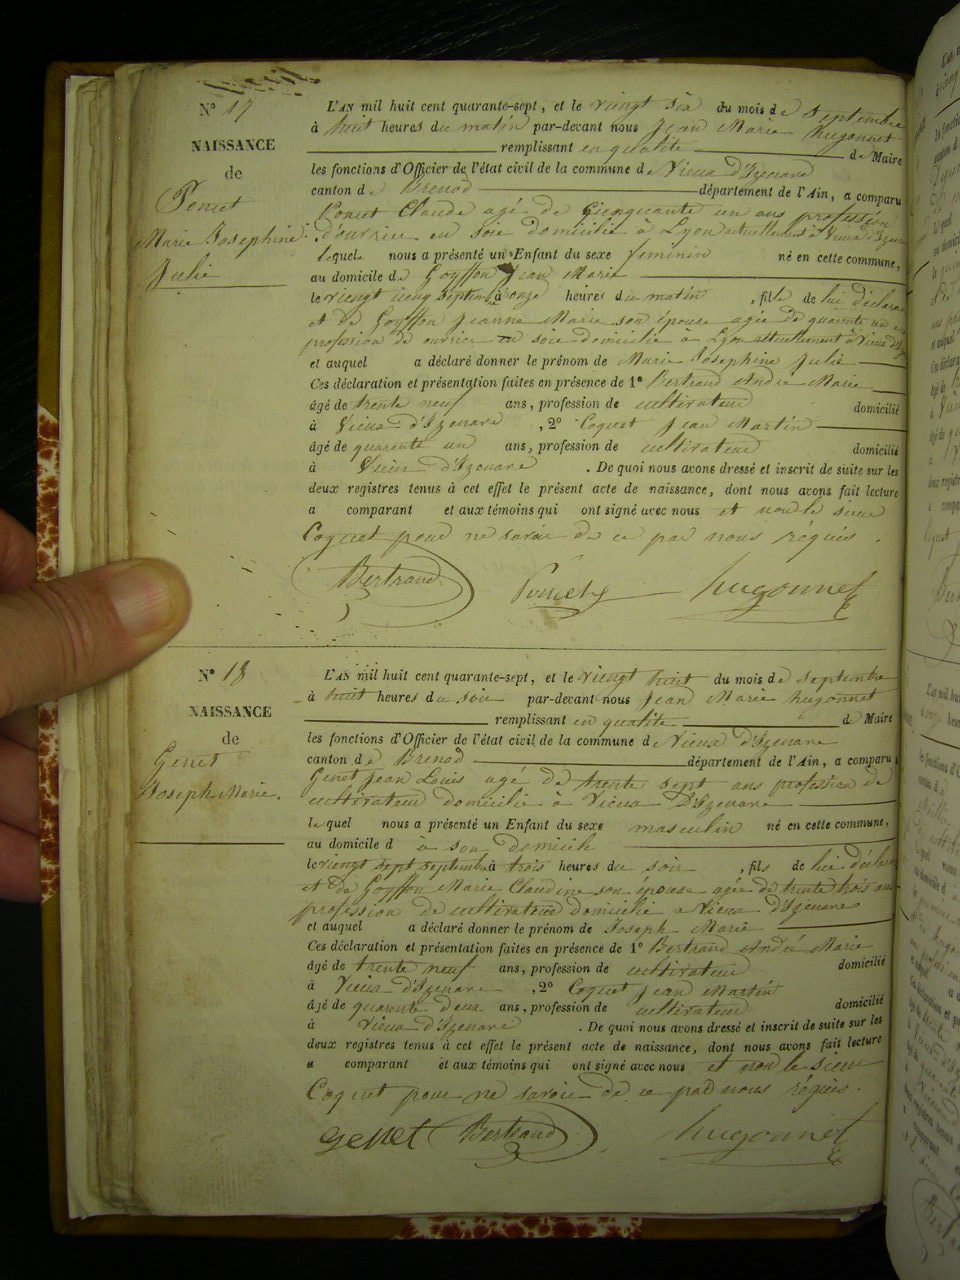 N° 17
NAISSANCE
de
Poncet
Marie Josephine
Julie
L'AN mil huit cent quarante-sept, et le viengt six du mois de septembre
à huit heures du matin par-devant nous Jean Marie hugonnet
remplissant en qualité de Maire
les fonctions d'Officier de l'état civil de la commune de Vieux d'Izenave
canton de Brenod département de l'Ain, a comparu
Poncet Claude agé de Cienquante un ans profession
d'ouvrier en soie domicilié à Lyon actuellement à Vieux d'Izenave
lequel nous a présenté un Enfant du sexe feminin né en cette commune,
au domicile de Goyffon Jean Marie
le viengt cienq septembre à onze heures du matin, fille de lui déclarant
et de Goyffon Jeanne Marie son épouse agée de quarente un ans
profession de ouvrier en soie domicilie à Lyon actuellement à Vieux d'Iz
et auquel a déclaré donner le prénom de Marie Josephine Julie
Ces déclaration et présentation faites en présence de 1° Bertrand André Marie
âgé de trente neuf ans, profession de cultivateur domicilié
à Vieux d'Izenave, 2° Coquet Jean Martin
âgé de quarente un ans, profession de cultivateur domicilié
à Vieux d'Izenave. De quoi nous avons dressé et inscrit de suite sur les
deux registres tenus à cet effet le présent acte de naissance, dont nous avons fait lecture
a comparant et aux témoins qui ont signé avec nous et non le sieur
Coquet pour ne savoir de ce par nous réquis.
Bertrand Poncet hugonnet
N° 18
NAISSANCE
de
Genet
Joseph Marie.
L'AN mil huit cent quarante-sept, et le viengt huit du mois de septembre
à huit heures du soir par-devant nous Jean Marie hugonnet
remplissant en qualité de Maire
les fonctions d'Officier de l'état civil de la commune de Vieux d'Izenave
canton de Brenod département de l'Ain, a comparu
Genet Jean Louis agé de trente sept ans profession de
cultivateur domicilié à Vieux D'Izenave
lequel nous a présenté un Enfant du sexe masculin né en cette commune,
au domicile d à son domicile
le viengt sept septembre à trois heures du soir, fils de lui décla
et de Goyffon Marie Claudine son épouse agée de trente trois ans
profession de cultivateur domicilie a Vieux D'Izenave
et auquel a déclaré donner le prénom de Joseph Marie
Ces déclaration et présentation faites en présence de 1° Bertrand André Marie
âgé de trente neuf ans, profession de cultivateur domicilié
à Vieux D'Izenave, 2° Coquet Jean Martin
âgé de quarente deux ans, profession de cultivateur domicilié
à Vieux d'Izenave. De quoi nous avons dressé et inscrit de suite sur les
deux registres tenus à cet effet le présent acte de naissance, dont nous avons fait lecture
a comparant et aux témoins qui ont signé avec nous et non le sieur
Coquet pour ne savoir de ce par nous réquis.
genet Bertrand hugonnet